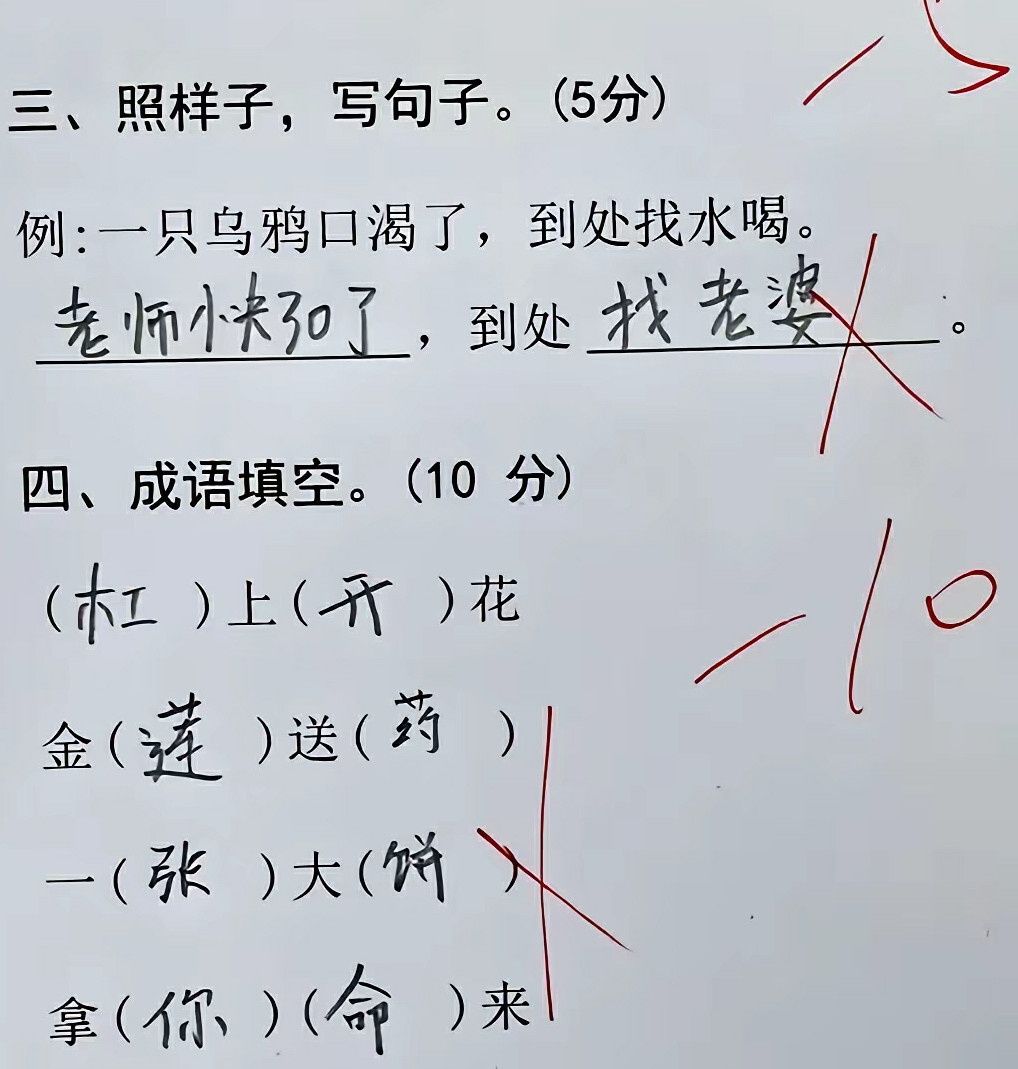 -5
三、照样子，写句子。(5分)
例:一只乌鸦口渴了，到处找水喝。
老师快30了，到处找老婆。
四、成语填空。(10 分)
(杠)上(开)花
-10
金(莲)送(药)
一(张)大(饼)
拿(你)(命)来